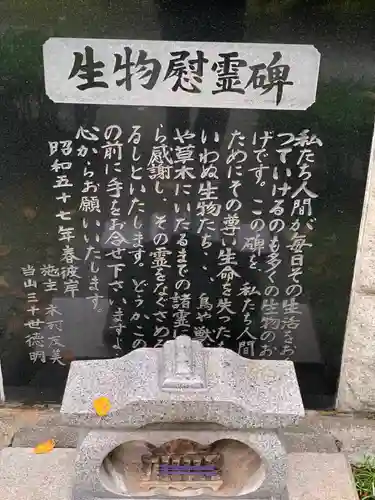 生物慰霊碑
私たち人間が毎日その生活をお
つていけるのも多くの生物のお
げです。この碑を、私たち人間
ためにその尊い生命を失った
いわぬ生物たち、、鳥や獣
や草木にいたるまでの諸霊に
ら感謝し、その霊をなぐさめる
るしといたします。どうかこの
の前に手をお合せ下さいますよ
心からお願いいたします
昭和五十七年春彼岸
施主 木村友美
当山三十世徳明